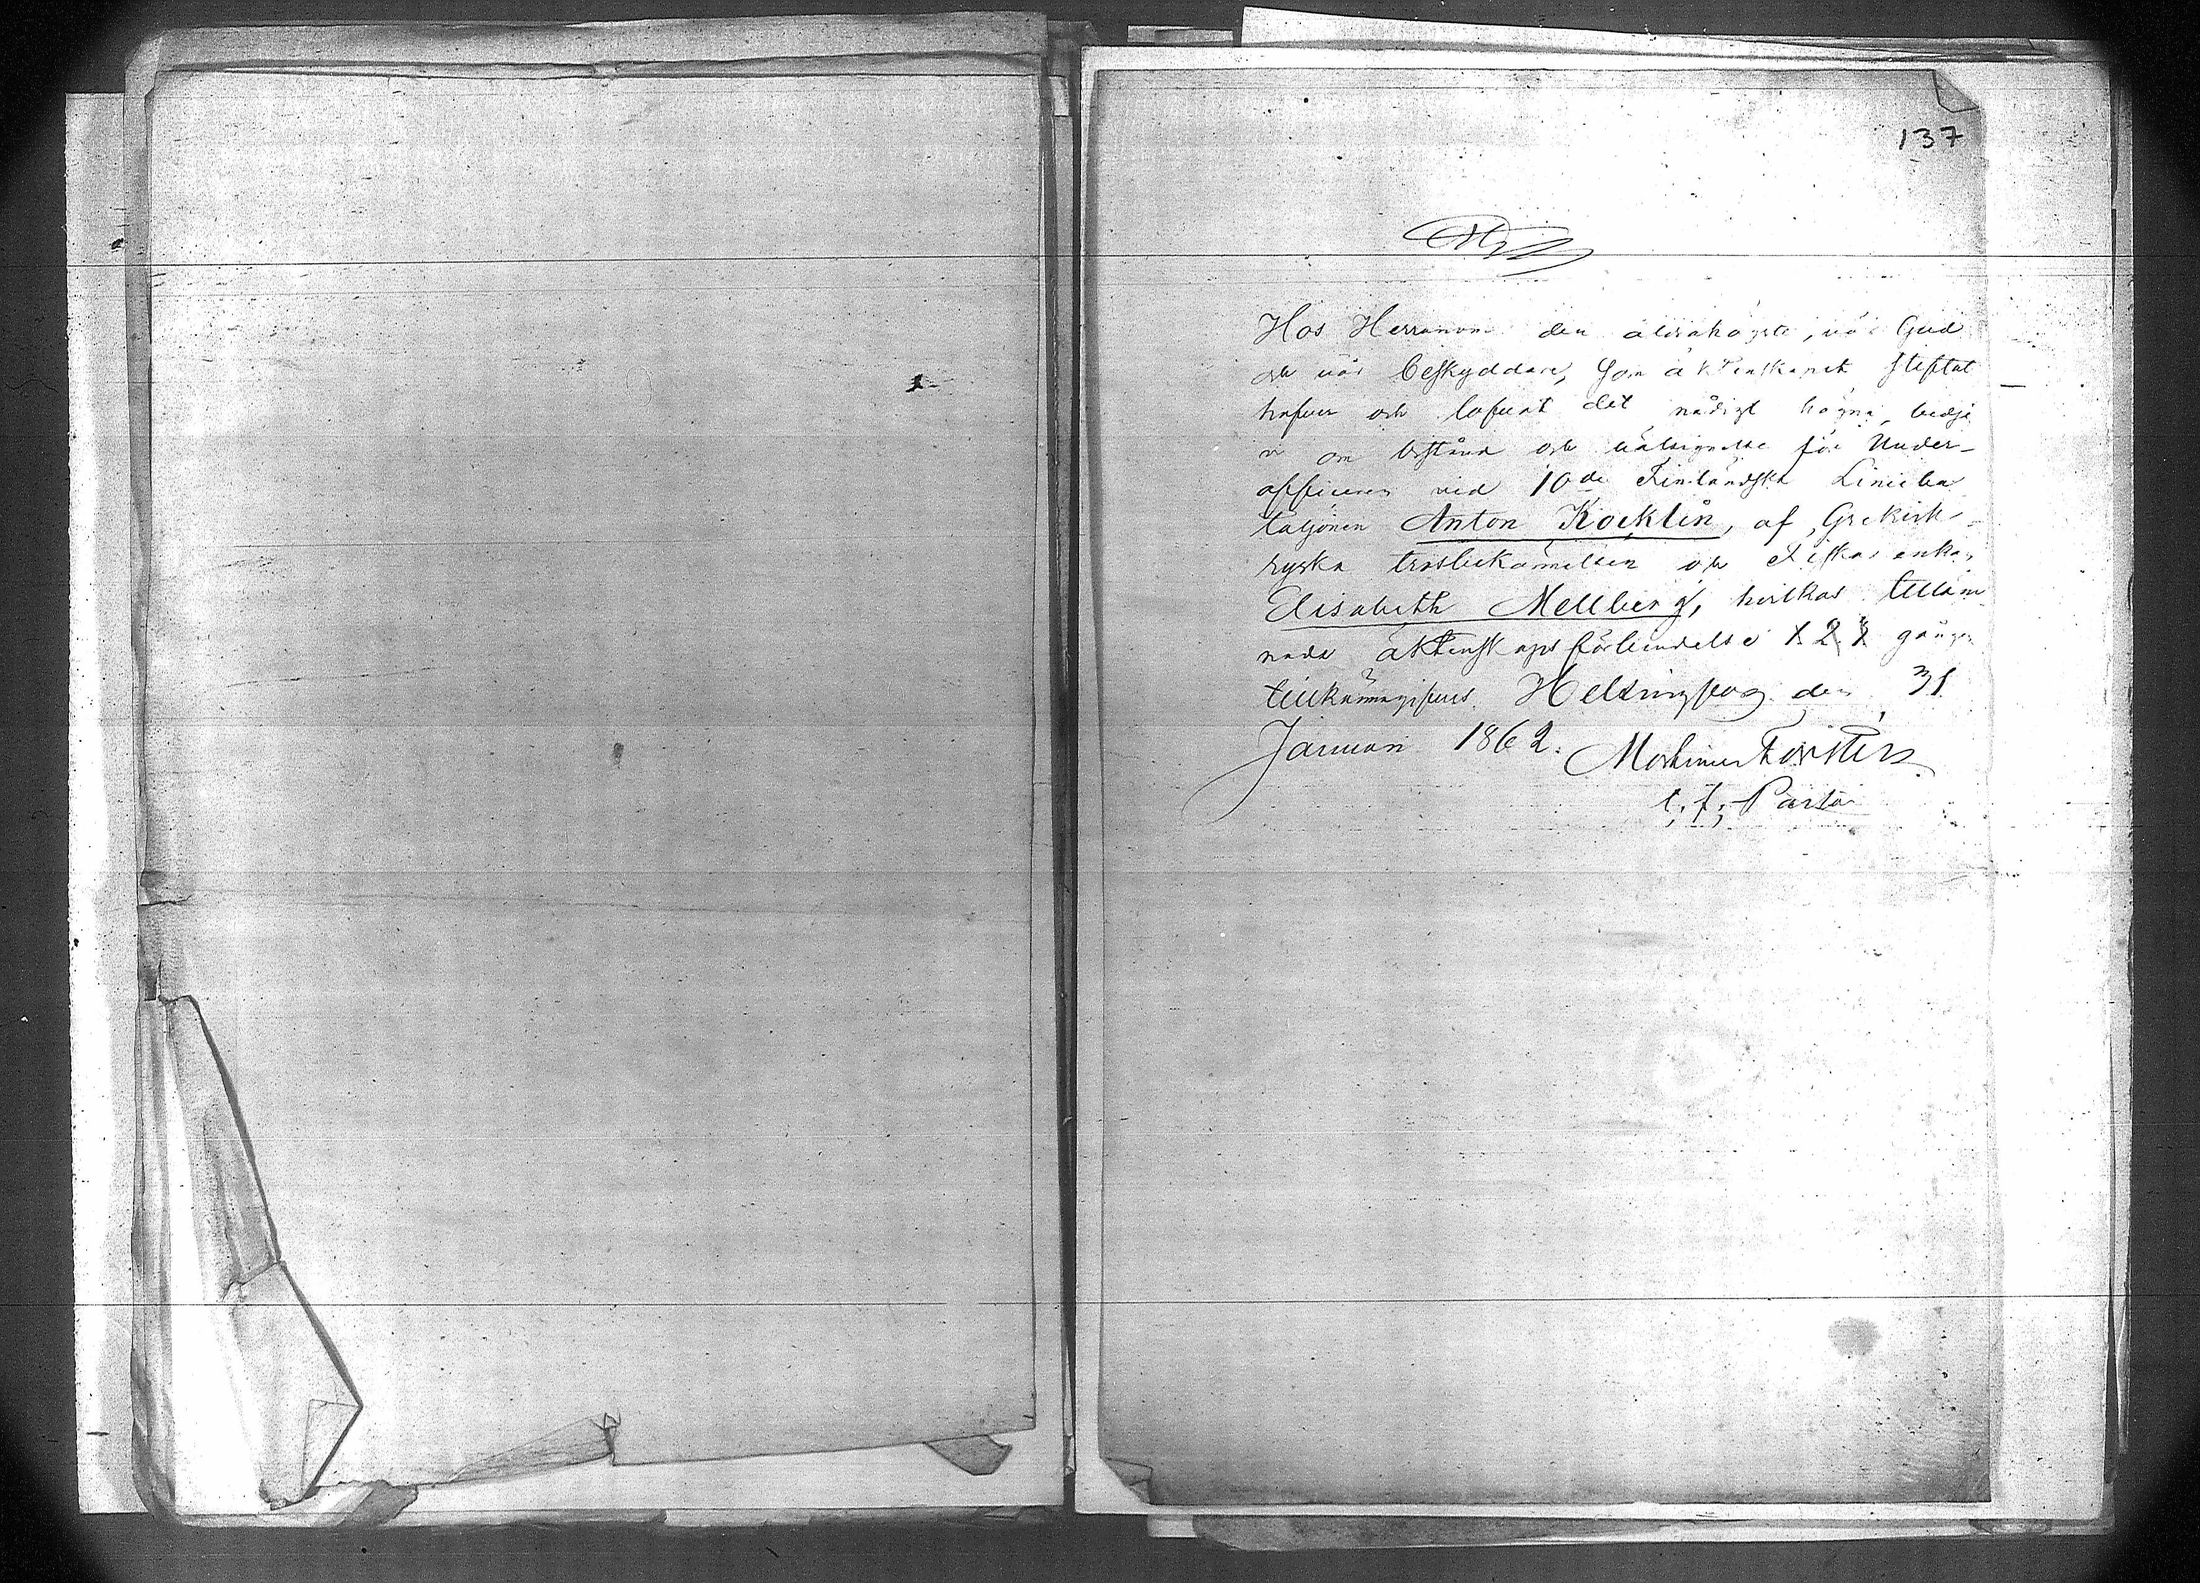 137
Hos Herranom den aldrahögste, vår Gud
och vår beskyddare, som äktenskapet stiftat
hafver och lofvat det nådigt hägna, bedje
vi om bistånd och välsignelse för Under-
officeren vid 10de Finländska Lineiba
taljonen Anton Kocklin, af Grekisk-
ryska trosbekännelsen och Fiskar enkan
Elisabeth Mellberg, hvilkas tilläm
nade äktenskapsförbindelse 1 2 3 gången
tillkännagifves. Helsingfors den 31
Januari 1862. Mortimer Forstén
t; f; Pastor